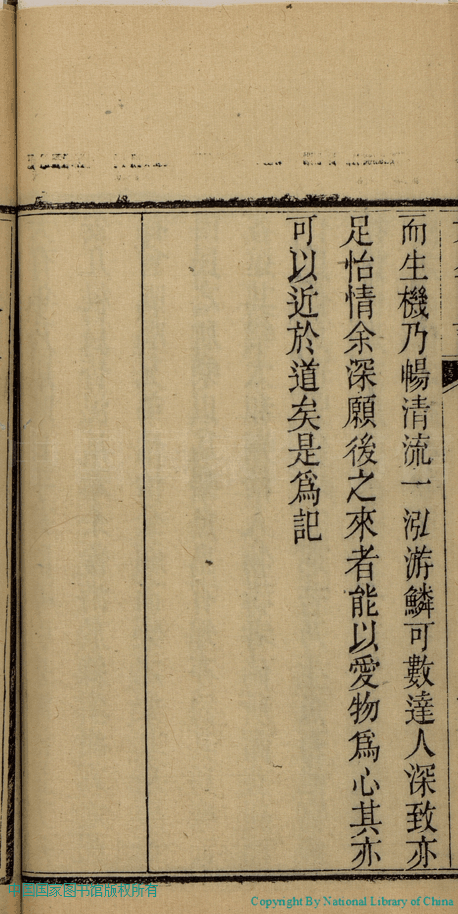 而生機乃暢清流一泓游鱗可數達人深致亦
足怡情余深願後之來者能以愛物爲心其亦
可以近於道矣是爲記
中国国家图书馆版权所有
Copyright By National Library of China